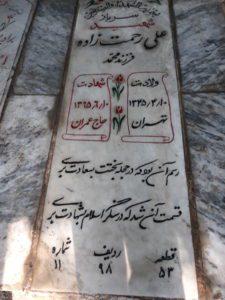 سرباز
شهید
علی رحمت زاده
فرزند محمد
ولادت
۱۳۴۵/۲/۱۰
تهران
شهادت
۱۳۶۵/۶/۱۰
حاج عمران
رسم آئین بود که در حجله بختت بسعادت بری
قسمت آئین شد که در سنگر اسلام بشهادت بری
قطعه ۵۳
ردیف ۹۸
شماره ۱۱